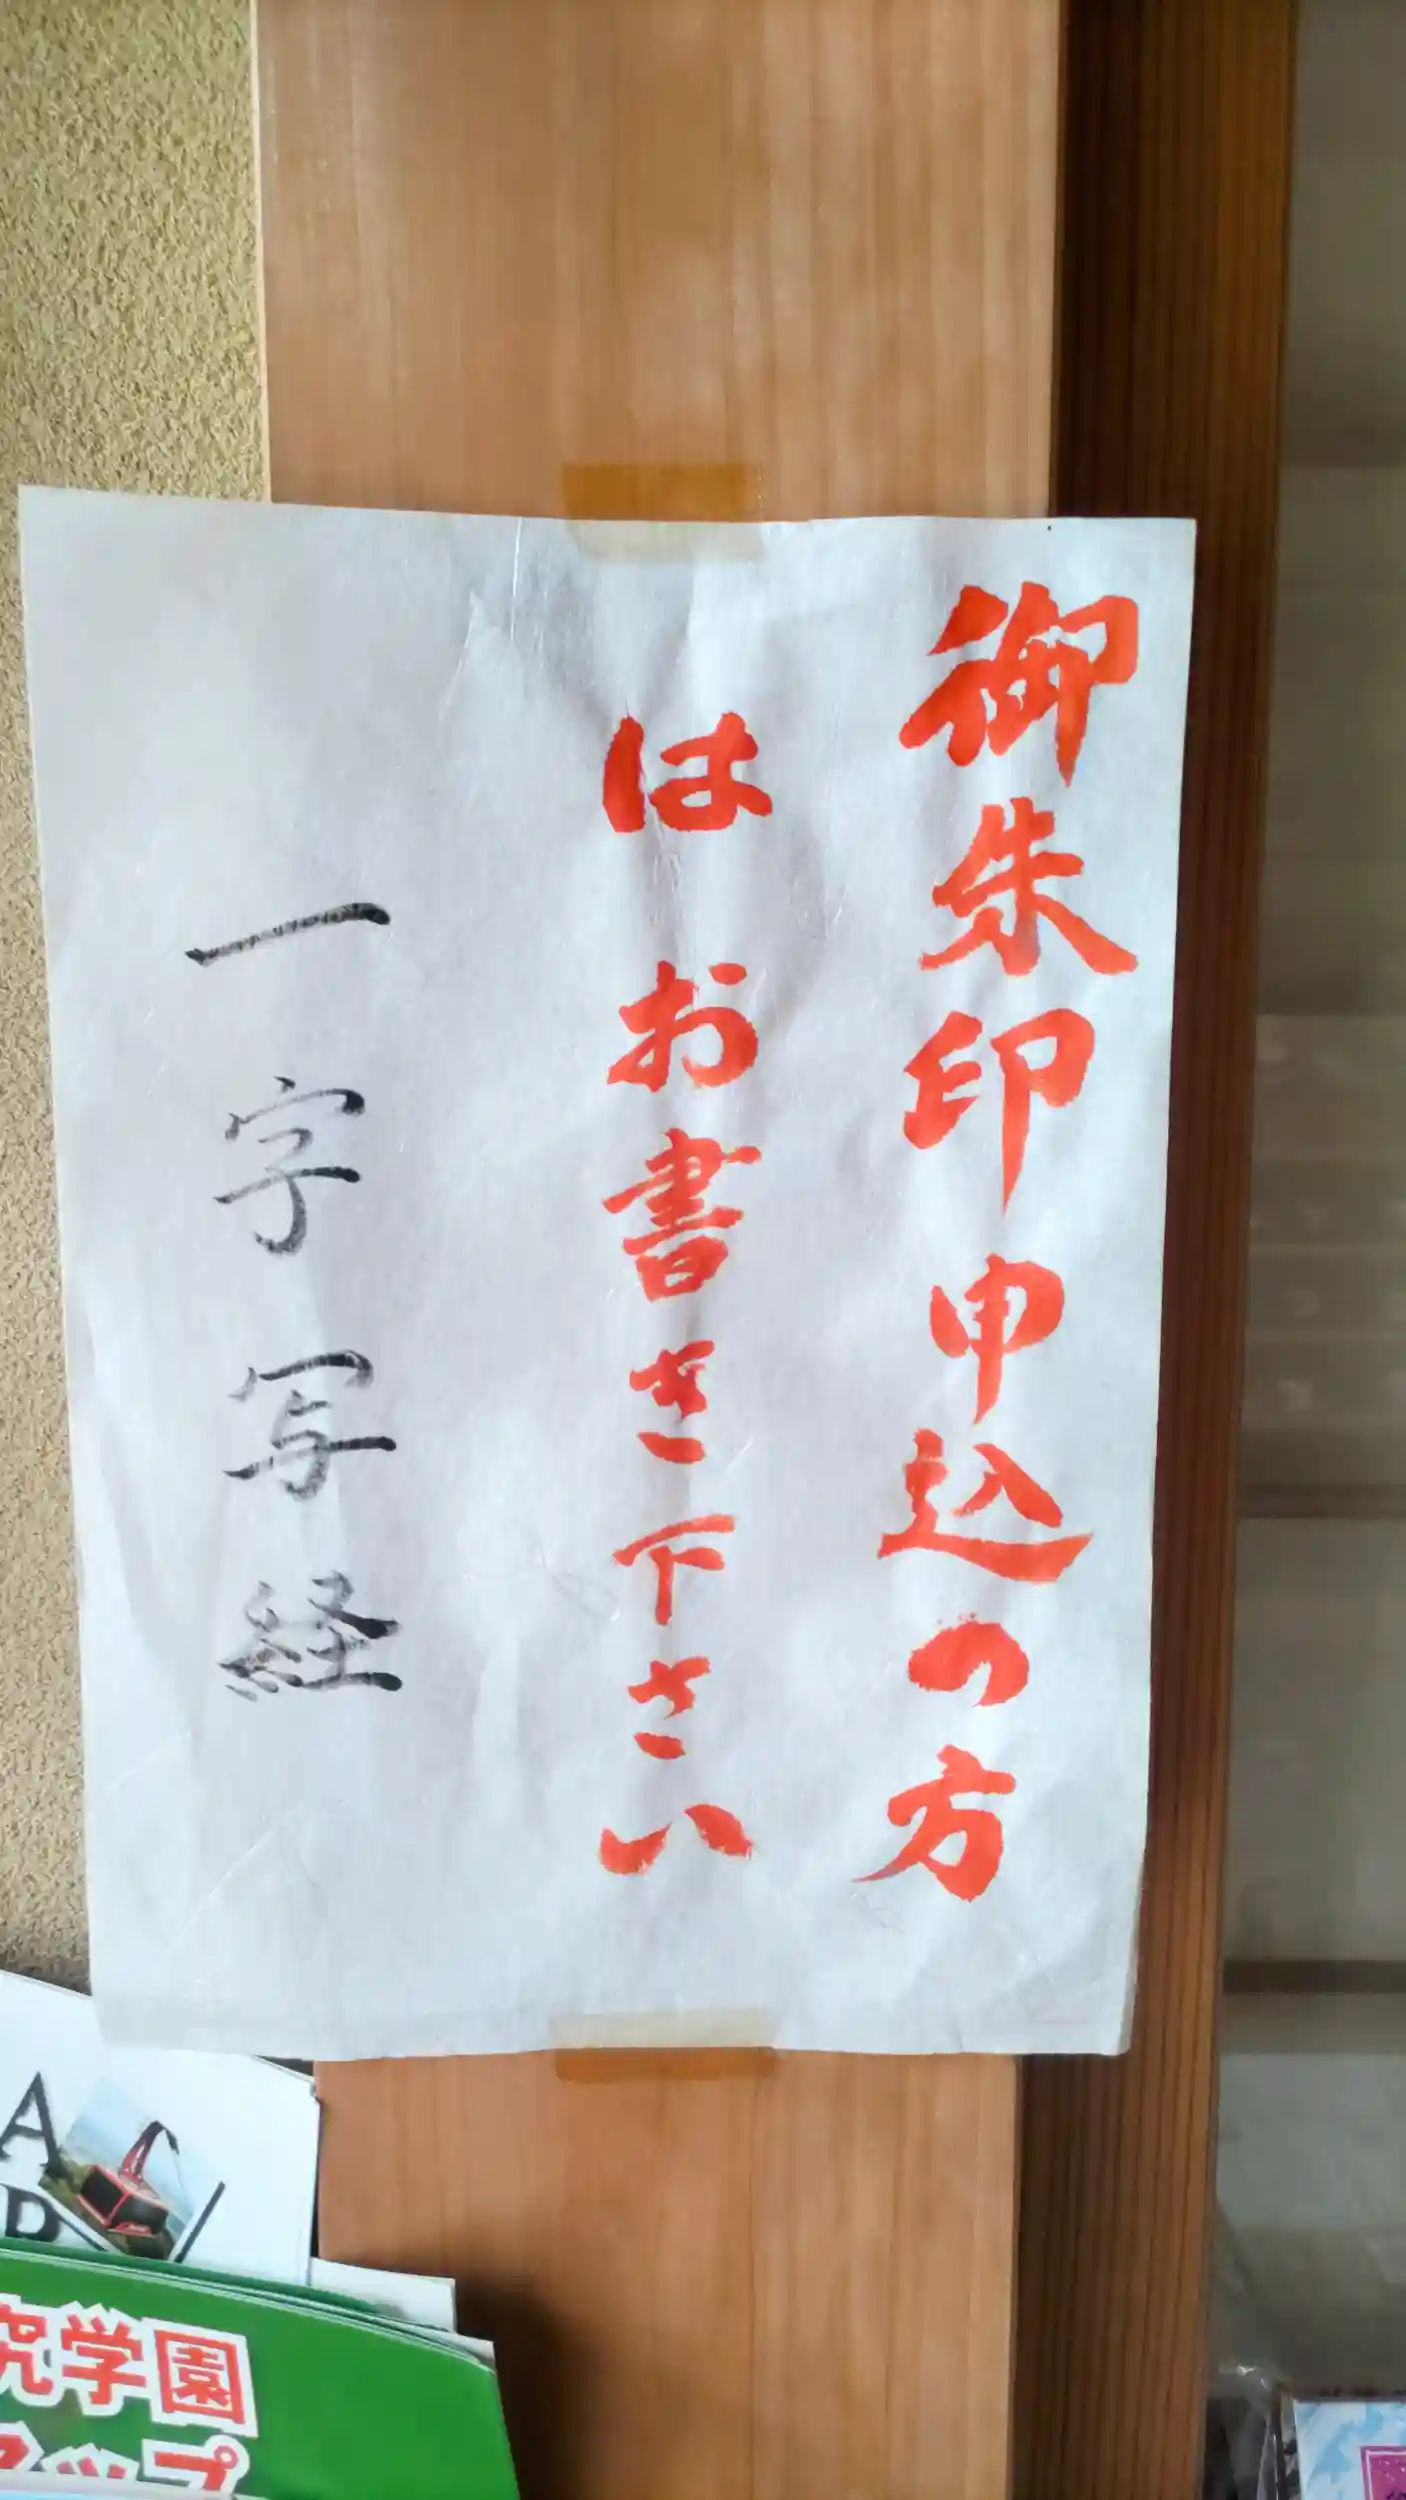 御朱印申込の方
はお書き下さい
一字写経
A
D
究学園
マップ